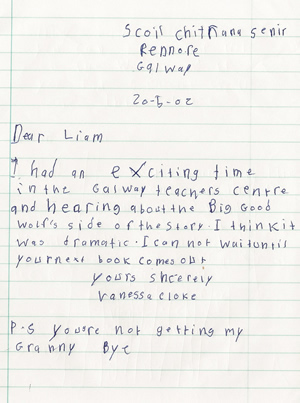 Scoil chithana senir
Rennore
Galway
20-5-02
Dear Liam
I had an exciting time
in the Galway teachers centre
and hearing about the Big Good
Wolf's side of the story. I think it
was dramatic. I can not wait until
your next book comes out
yours sincerely
Vanessa Cloke
P.S you're not getting my
Granny Bye